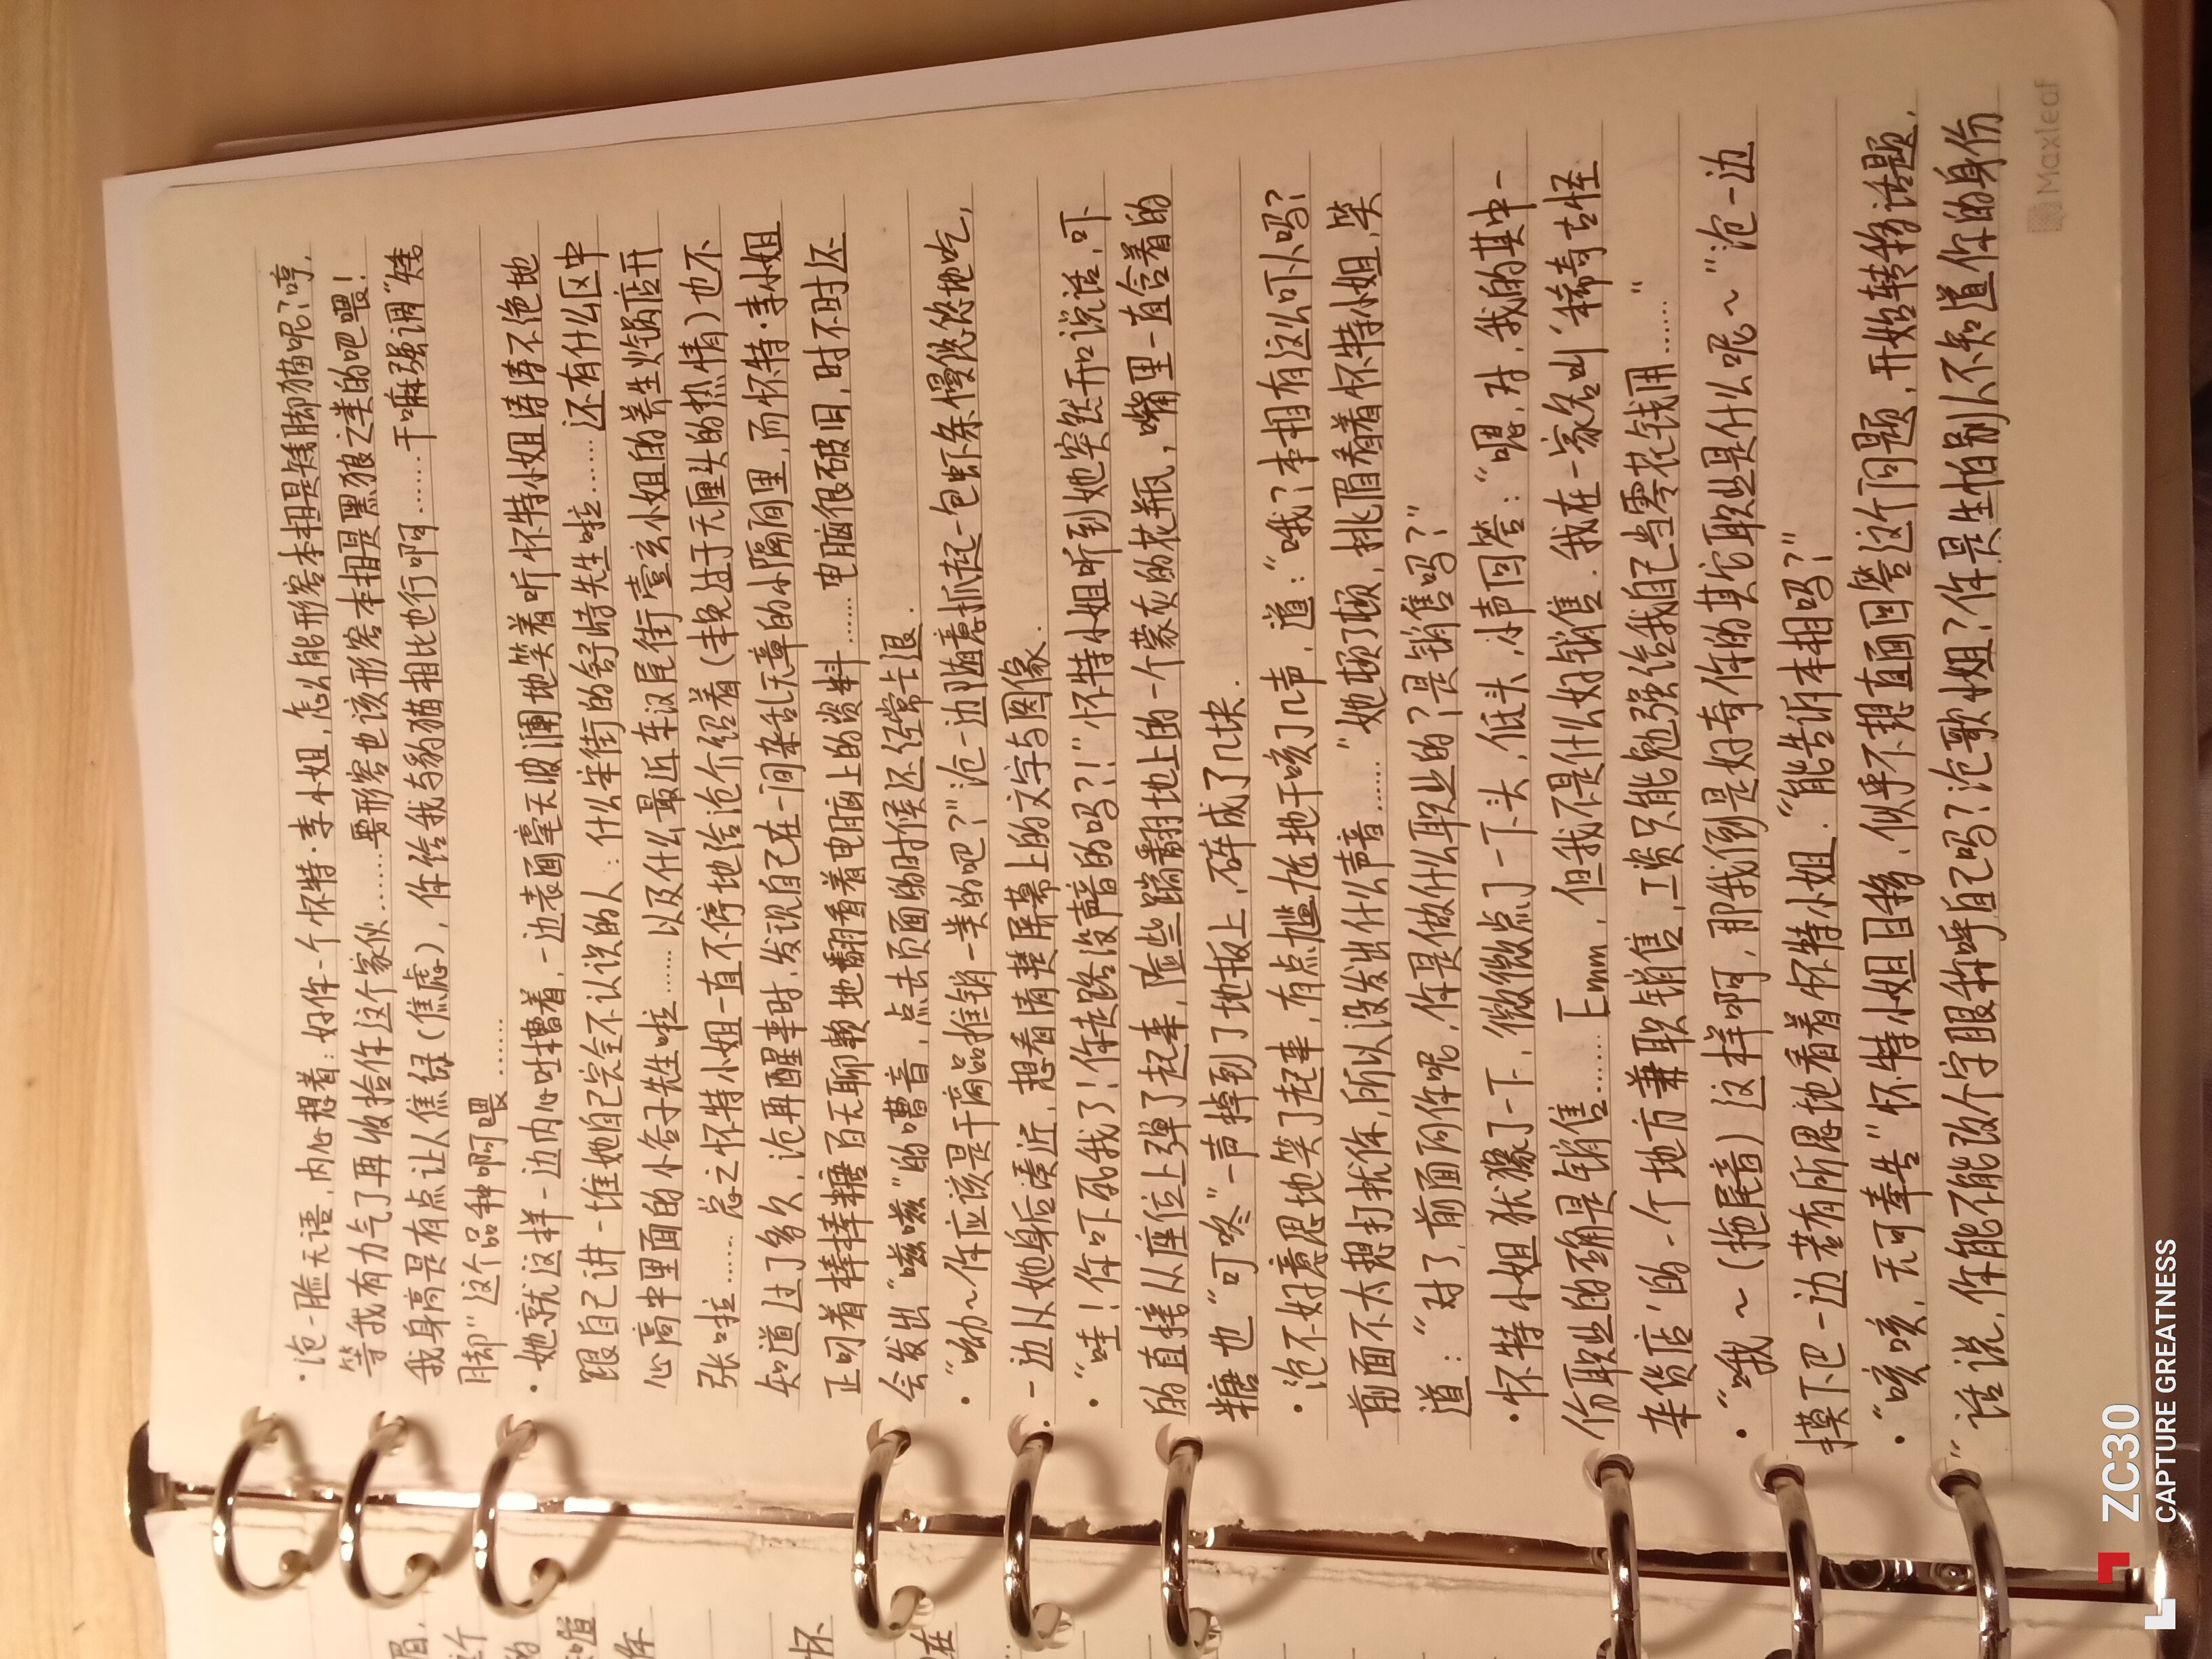 ·沧一脸无语，内心想着：好你一个怀特·李小姐，怎么能形容本相是矮脚猫呢？哼，
等我有力气了再收拾你这个家伙……要形容也该形容本相是黑狼之类的吧喂！
我身高是有点让人焦绿（焦虑），你给我与豹猫相比也行啊……干嘛强调“矮
脚”这个品种啊喂……
·她就这样一边内心吐槽着，一边表面毫无波澜地笑着听怀特小姐滔滔不绝地
跟自己讲一堆她自己完全不认识的人：什么半街的舒特先生啦……还有什么区中
心高中里面的小答子先生啦……以及什么最近车汉尾街壹玄小姐的养生火锅店开
张啦……总之怀特小姐一直不停地给沧介绍着（丰免过于无厘头的热情）也不
知道过了多久，沧再醒来时，发现自己在一间杂乱无章的小隔间里，而怀特·李小姐
正叼着棒棒糖百无聊赖地翻看着电脑上的资料……电脑很破旧，时不时还
会发出“嗞嗞”的嘈音，点击页面的时候还经常卡退.
·“呦～你应该是干商品推销一类的吧？”沧一边随意抓起一包虾条慢悠悠地吃，
一边从她身后凑近，想看清楚屏幕上的文字与图像.
·“哇！你吓死我了！你走路没声音的吗？！”怀特小姐听到她突然开口说话，吓
的直接从座位上弹了起来，险些踹翻地上的一个蒙灰的花瓶，嘴里一直含着的
糖也“叮咚”一声掉到了地板上，碎成了几块.
·沧不好意思地笑了起来，有点尴尬地干咳了几声，道：“哦？本相有这么吓人吗？
前面不太想打扰你，所以没发出什么声音……”她顿了顿，挑眉看着怀特小姐，笑
道：“对了，前面问你呢，你是做什么职业的？是销售吗？”
·怀特小姐犹豫了一下，微微点了一下头，低头，小声回答：“嗯，对，我的其中一
份职业的确是销售……Emm，但我不是什么好销售，我在一家名叫‘稀奇古怪
杂货店’的一个地方兼职销售，工资只能勉强给我自己当零花钱用……”
·“哦～（拖尾音）这样啊，那我倒是好奇你的其它职业是什么呢～”沧一边
摸下巴一边若有所思地看着怀特小姐.“能告诉本相吗？”
·“咳咳，无可奉告”怀特小姐目移，似乎不想直面回答这个问题，开始转移话题，
“话说，你能不能改个字眼称呼自己吗？沧歌小姐？你是生怕别人不知道你的身份
Maxleaf
眉，
个
的
道
你
怀
在
ZC30
CAPTURE GREATNESS